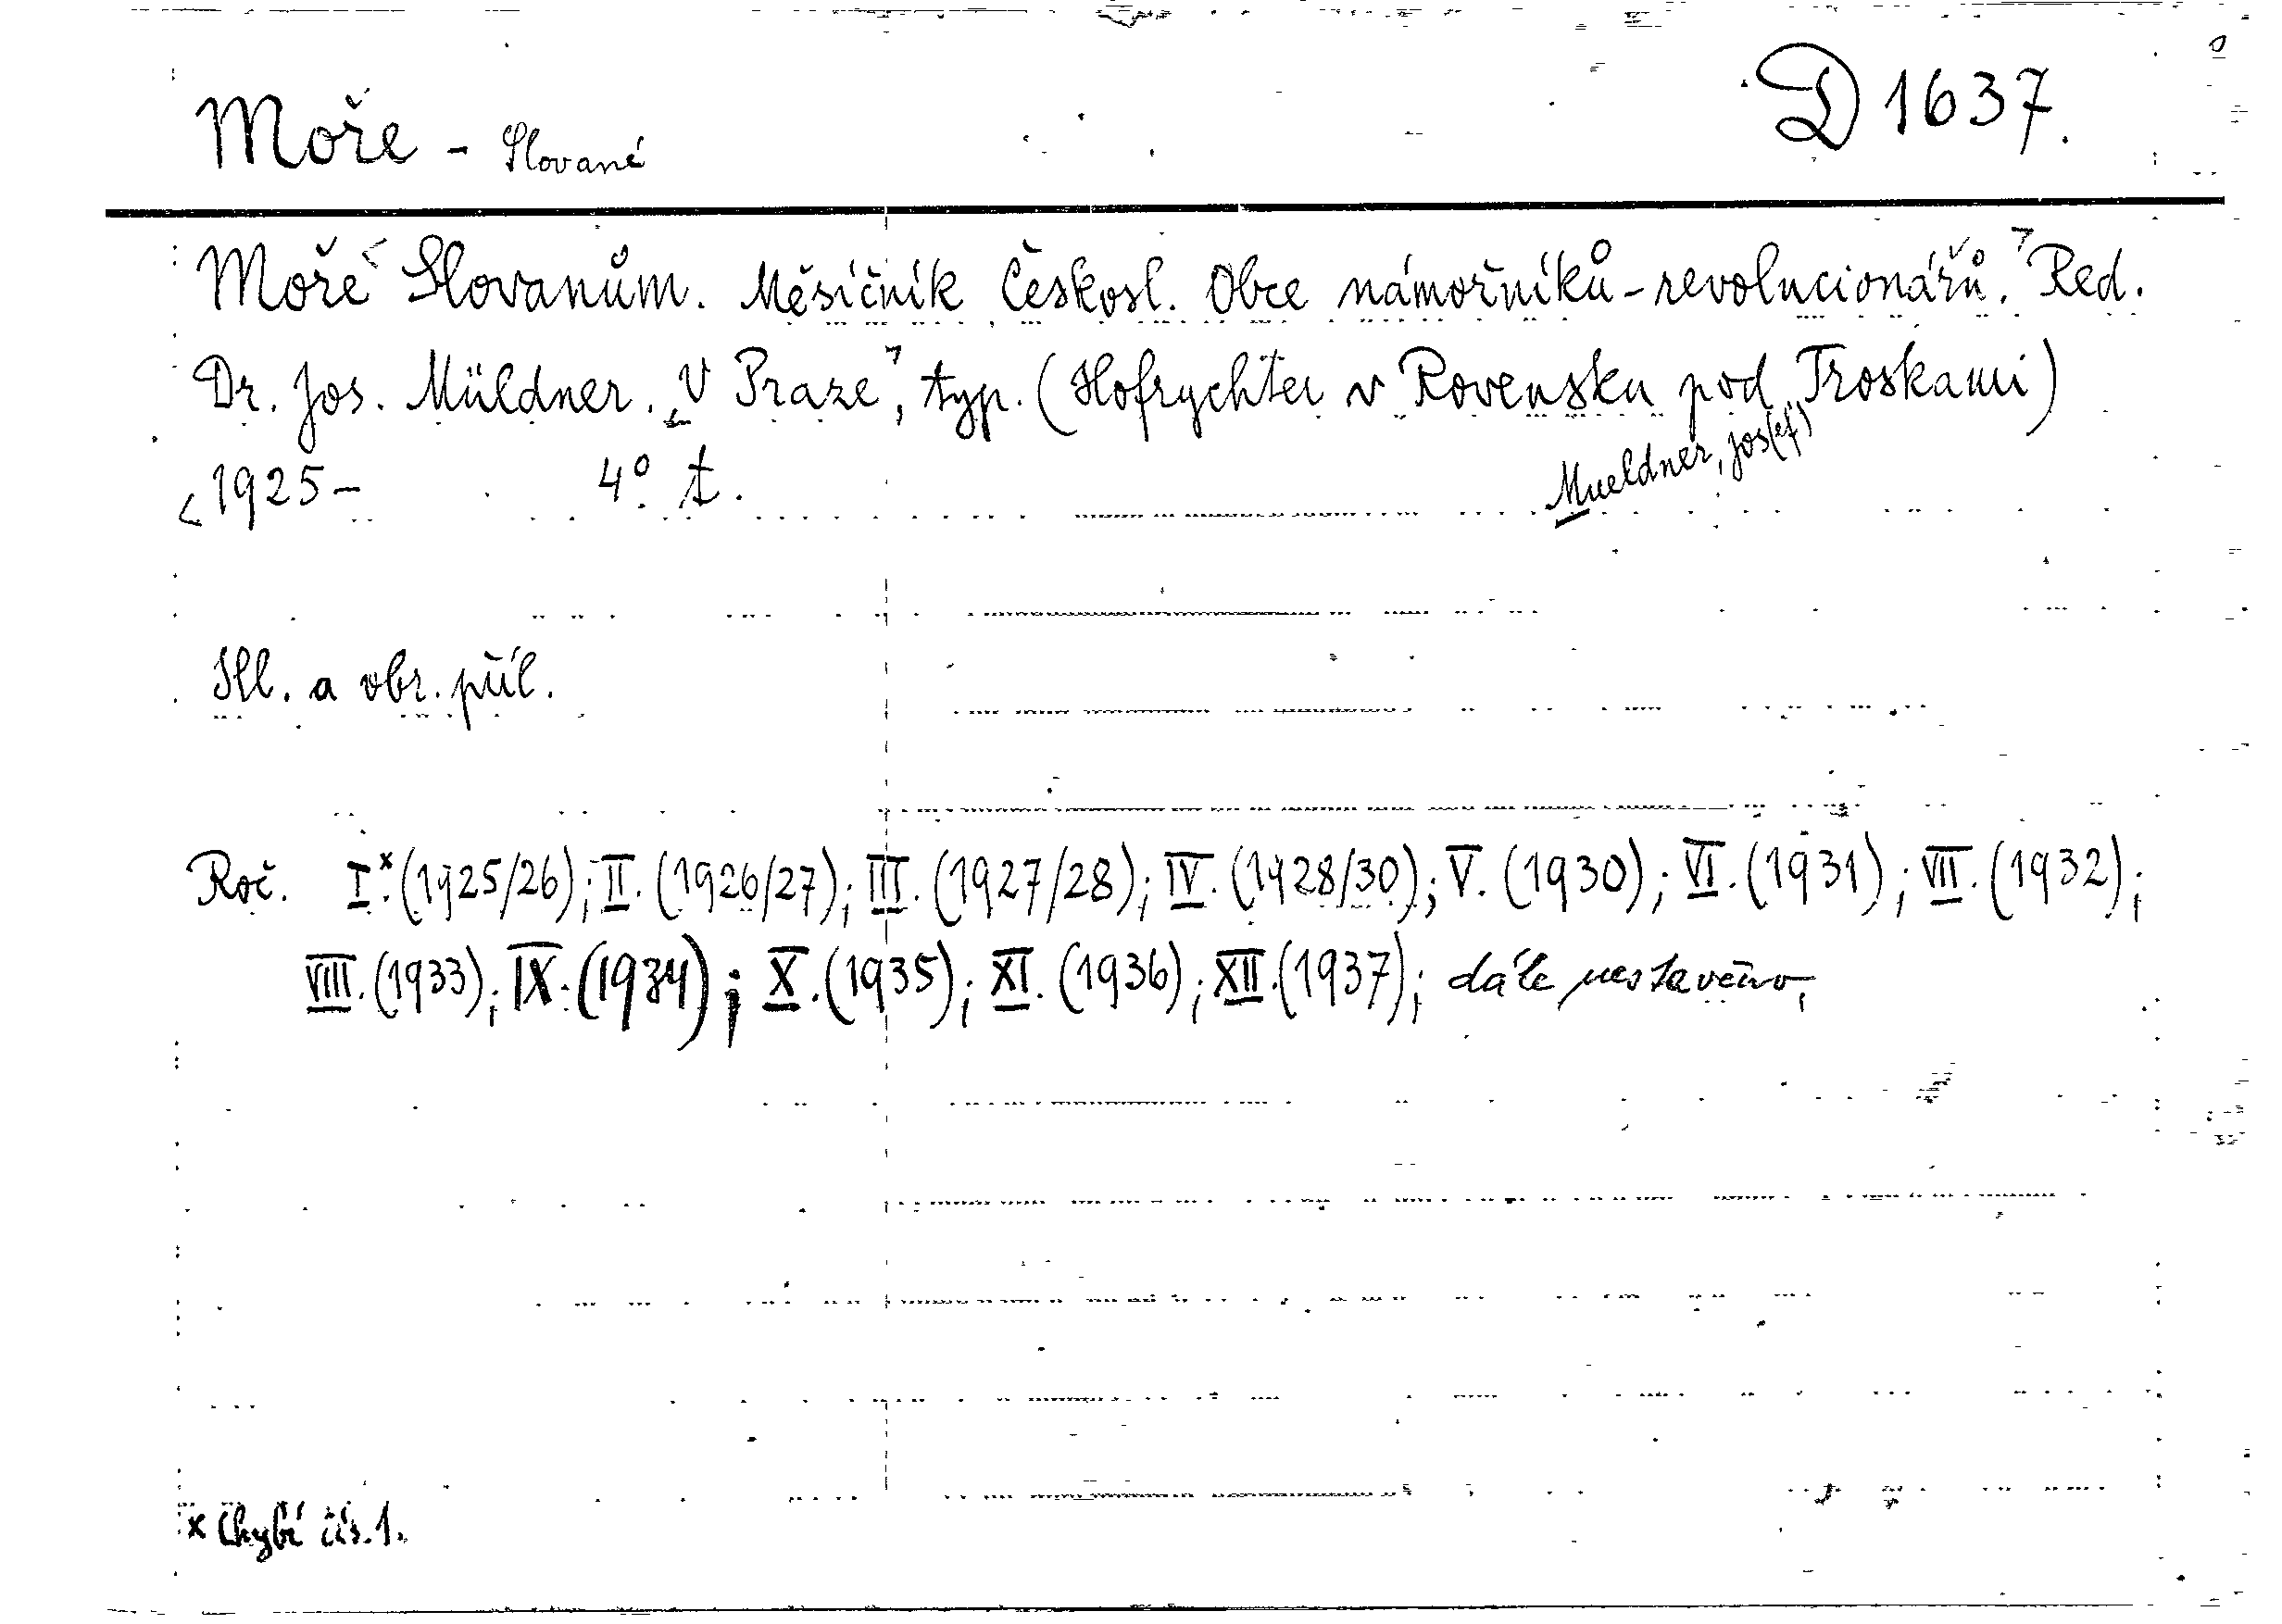 Moře - Slované
D 1637.
Moře Slovanům. Měsíčník Českosl. Obce námořníků-revolucionářů. Red.
Dr. Jos. Müldner. V Praze, typ. (Hofrychter v Rovensku pod Troskami)
Mueldner, Jos(ef)
1925- 4° t.
Ill. a obr. příl.
Roč. I.x (1925/26); II. (1926/27); III. (1927/28); IV. (1928/30); V. (1930); VI. (1931); VII. (1932);
VIII. (1933); IX. (1934); X. (1935); XI. (1936); XII. (1937); dále nestavěno,
x Chybí čís. 1.